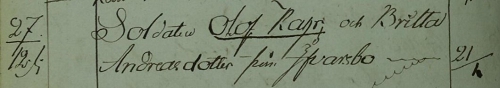 27/12 Soldaten Olof Rapp och Britta
Andreasdotter från Ifvarsbo 21/